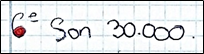 6º Son 30.000.